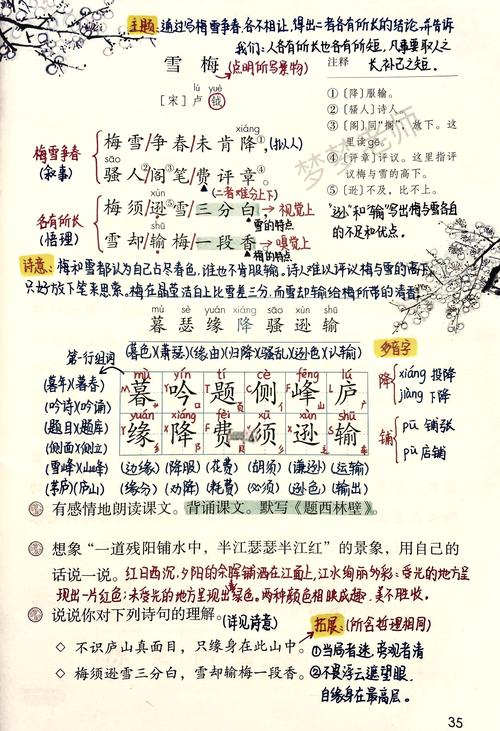 主题:通过写梅雪争春,各不相让,得出二者各有所长的结论,并告诉
我们:人各有所长也各有所短,凡事要取人之
长补己之短.
lú yuè
雪 梅 (点明所写景物)
[宋] 卢 钺
注释
①〔降〕服输。
②〔骚人〕诗人。
③〔阁〕同“搁”,放下。这
里读gē。
④〔评章〕评议。这里指评
议梅与雪的高下。
⑤〔逊〕不及,比不上。
“逊”和“输”写出梅与雪各自
的不足和优点.
梅雪争春
(叙事)
xiáng
梅雪/争春/未肯降①,(拟人)
sāo
骚人②/阁③笔/费评章④。
(二者难分上下)
各有所长
(悟理)
xùn
梅须逊⑤雪/三分白,→视觉上
雪的特点
shū
雪却/输梅/一段香→嗅觉上
梅的特点
梦梦老师
诗意:梅和雪都认为自己占尽春色,谁也不肯服输.诗人难以评议梅与雪的高下,
只好放下笔来思索.梅在晶莹洁白上比雪差三分,而雪却输给梅所带的清香.
mù sè yuán xiáng sāo xùn shū
暮 瑟 缘 降 骚 逊 输
(暮色)(萧瑟)(缘由)(归降)(骚乱)(逊色)(认输)
第一行组词
mù yín tí cè fēng lú
暮 吟 题 侧 峰 庐
yuán xiáng fèi xū xùn shū
缘 降 费 须 逊 输
(暮年)(暮春)
(吟诗)(吟诵)
(题目)(题库)
(侧面)(侧立)
(雪峰)(山峰)
(茅庐)(庐山)
(边缘)(降服)(花费)(胡须)(谦逊)(运输)
(缘分)(劝降)(耗费)(必须)(逊色)(输出)
多音字
降 xiáng 投降
jiàng 下降
铺 pū 铺张
pù 店铺
有感情地朗读课文。背诵课文。默写《题西林壁》。
想象“一道残阳铺水中,半江瑟瑟半江红”的景象,用自己的
话说一说。红日西沉,夕阳的余晖铺洒在江面上,江水绚丽多彩:受光的地方呈
现出一片红色;未受光的地方呈现出绿色.两种颜色相映成趣,美不胜收.
说说你对下列诗句的理解。(详见诗意)
◇ 不识庐山真面目,只缘身在此山中。
◇ 梅须逊雪三分白,雪却输梅一段香。
拓展:(所含哲理相同)
①当局者迷,旁观者清
②不畏浮云遮望眼,
自缘身在最高层.
35